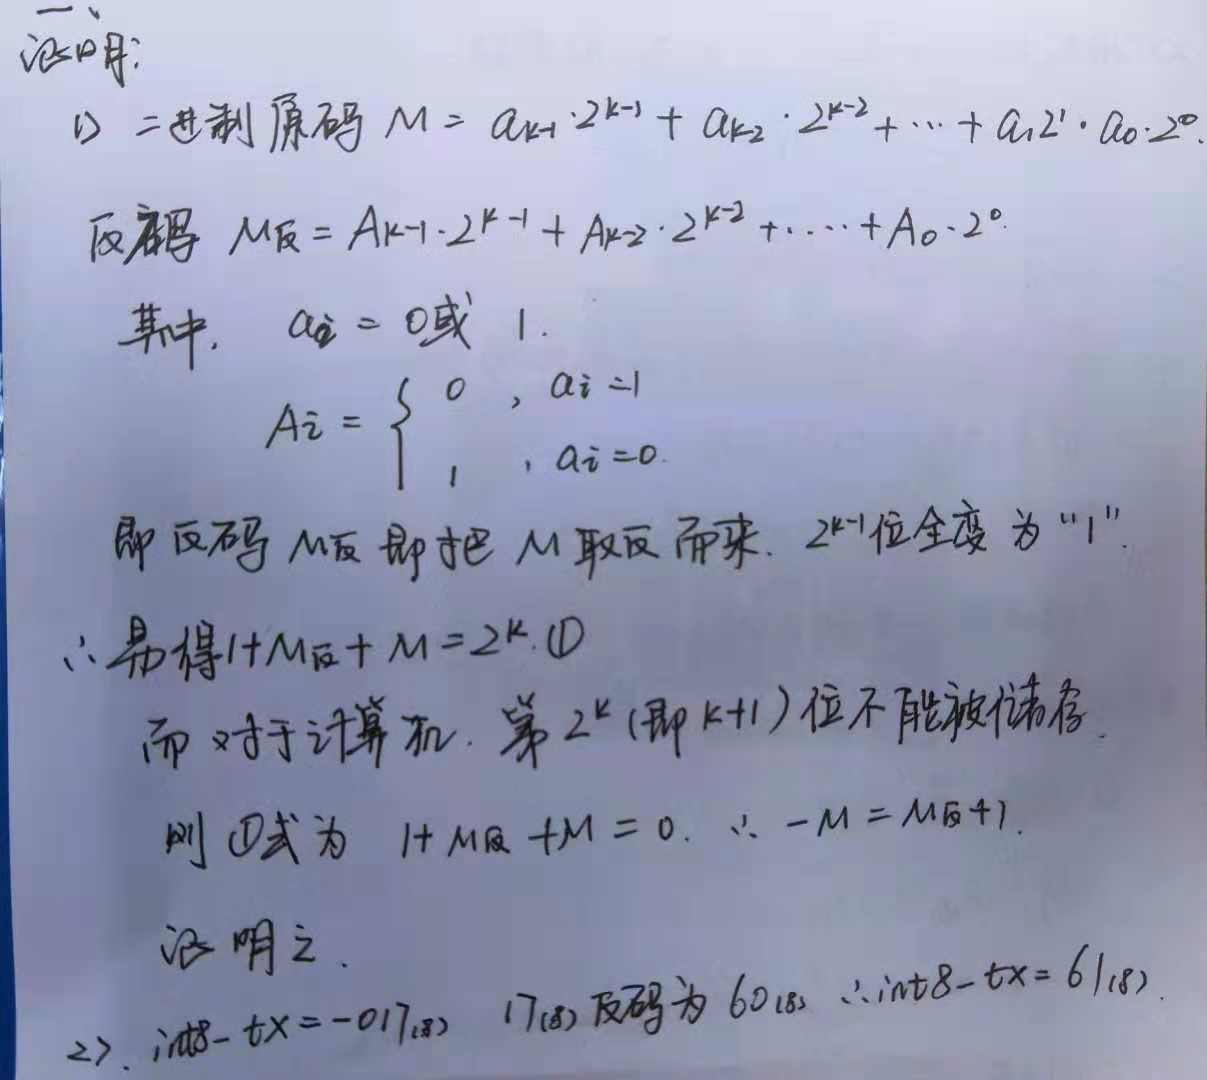 一、
证明:
1) 二进制原码 M = aₖ₋₁·2ᵏ⁻¹ + aₖ₋₂·2ᵏ⁻² + ··· + a₁2¹·a₀·2⁰.
反码 M反 = Aₖ₋₁·2ᵏ⁻¹ + Aₖ₋₂·2ᵏ⁻² + ····· + A₀·2⁰.
其中, aᵢ = 0或 1.
Aᵢ = { 0 , aᵢ=1
1 , aᵢ=0.
即 反码 M反 即把 M取反而来. 2ᵏ⁻¹位全变为“1”.
∴易得1+M反+M=2ᵏ.①
而对于计算机. 第2ᵏ(即k+1)位不能被储存.
则①式为 1+M反+M=0. ∴ -M=M反+1.
证明之.
2). int8-tx=-017₍₈₎ 17₍₈₎反码为60₍₈₎ ∴int8-tx=61₍₈₎.